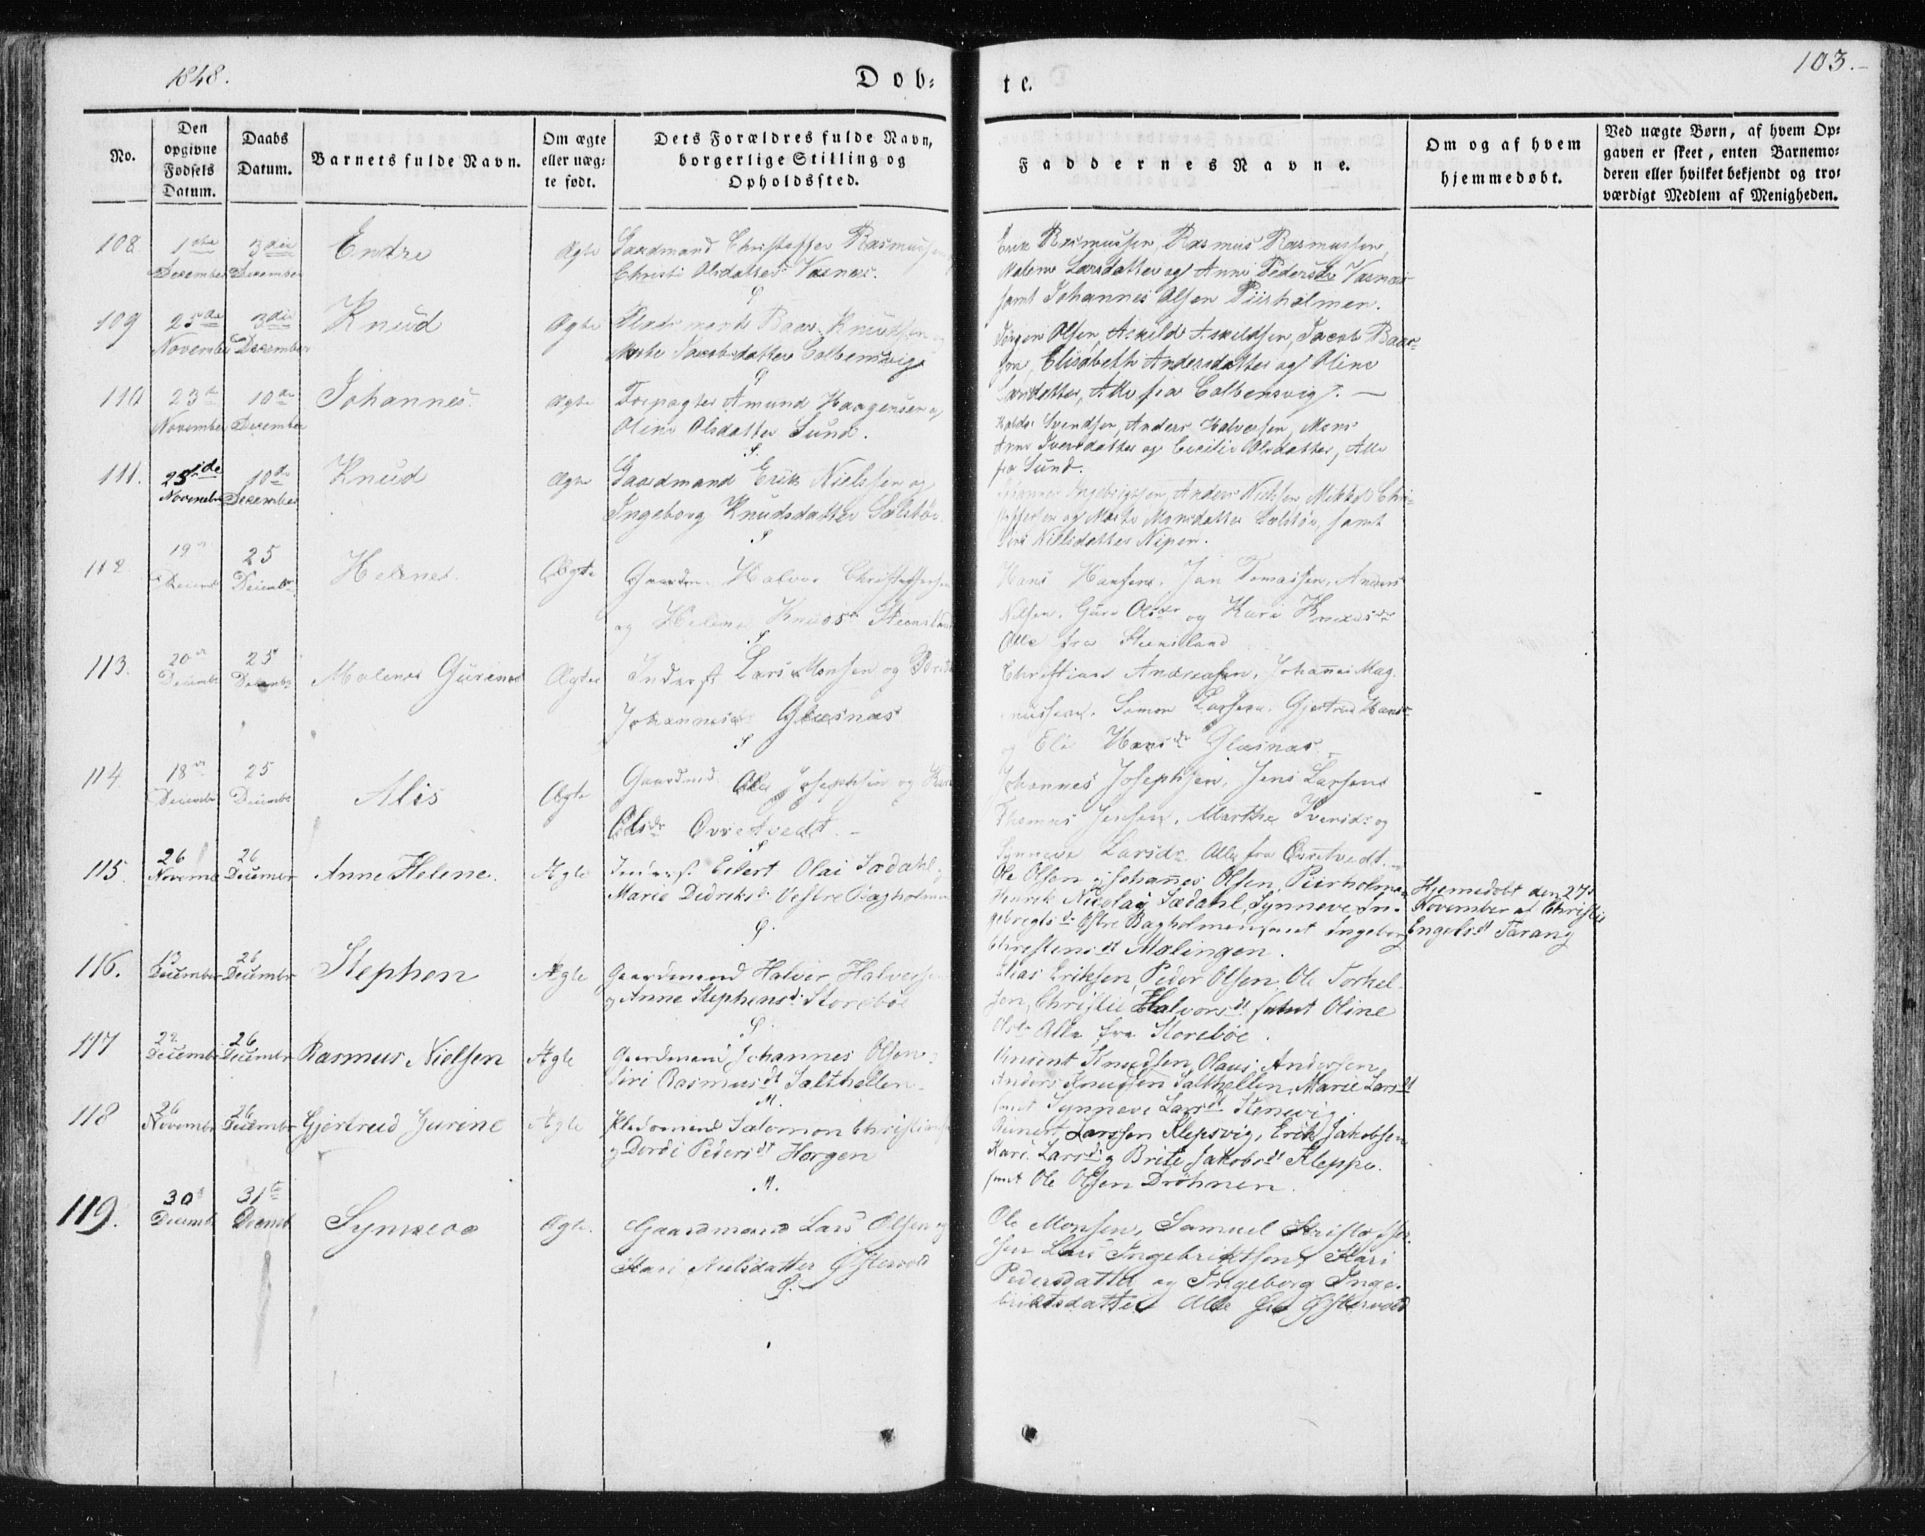 1848.
Dob:
te.
103.
No.
Den opgivne Fødsels Datum.
Daabs Datum.
Barnets fulde Navn.
Om ægte eller uæg: te født.
Dets Forældres fulde Navn, borgerlige Stilling og Opholdssted.
Faddernes Navne.
Om og af hvem hjemmedøbt.
Ved uægte Børn, af hvem Op: gaven er skeet, enten Barnemo: deren eller hvilket bekjendt og tro: værdigt Medlem af Menigheden.
108
1ste December
3die December
Endre
Ægte
Gaardmand Christoffer Rasmussen
Christi Olsdatter Vasnæs.
Erik Rasmussen, Rasmus Rasmussen,
Malene Larsdatter og Anne Vasnæs
samt Johannes Olsen Piirholmen.
109
25de November
3die December
Knud
Ægte
Baar Knudsen og
Jacobsdatter Colbensvig
Jørgen Olsen, Askild Askildsen, Jacob Baar-
sen, Elisabeth Andersdatter og Oline
Larsdatter, Alle fra Colbensvig. —
110
23de November
10de December
Johannes.
Ægte
Forpagter Amund Haagensen og
Oline Olsdatter Sund.
Svendsen, Anders Halvorsen, Mons
Anne Iversdatter og Cecilie Olsdatter, Alle
fra Sund.
111.
25de November
10de December
Knud
Ægte
Gaardmand Erik Nielsen og
Ingeborg Knudsdatter Sælstøe.
Johannes Ingebrigtsen, Anders Nielsen Mikkel Chri-
stoffersen og Marte Monsdatter Sælstøe, samt
Nielsdatter Nipen.
112
19 Decemb
25 Decemb
Helene.
Ægte
Gaardm. Halvor Christoffersen
og Helene Knuds Steensland
Hans Hansen, Jan Tomassen, Anders
Nilsen, Guro Olsdr og Kari Knudsdr
Alle fra Steensland
113.
20 Decembr
25 Decembr
Malene Gurine
Ægte
Inderst Lars Monsen og Brite
Johannesdr Glæsnæs
Christian Andreasen, Johannes Mag-
nussen, Simon Larsen, Gjertrud Hansdr
og Eli Hansdr Glæsnæs
114
18 Decembr
25 Decembr
Alis
Ægte
Gaardmd. Ole Josephsen og Kari
Olsdr Øvretvedt. -
Johannes Josephsen, Jens Larsen
Thomas Jensen, Marthe Iversdr og
Synneve Larsdr Alle fra Øvretvedt.
115.
26 Novembr
26 Decembr
Anne Helene.
Ægte
Inderst Eilert Olai Sædahl
Marie Didriksdt Vestre Bagholmen
Ole Olsen, Johannes Olsen Piirholmen
Henrik Nicolai Sædahl, Synneve In-
gebregtsdt Østre Bagholmen samt Ingeborg
Christensdt Malingen.
Hjemmedøbt den 27de
November af Christie
Engelsdt Tarang
116.
15 December
26 Decembr
Stephen
Ægte
Gaardmand Halver Halversen
og Anne Stephensdt Storebøe
Elias Eriksen, Peder Olsen, Ole Torkel-
sen, Christie Halvorsdt samt Oline
Olsdt Alle fra Storebøe.
117
22 Decembr
26 Decembr
Rasmus Nielsen
Ægte
Gaardmand Johannes Olsen
Siri Rasmusdt Salthellen
Vincent Knudsen, Olaus Andersen,
Anders Knudsen Salthellen, Marie Larsdt
samt Synneve Larsdt Stenevig.
118
26 Novembr
26 Decembr
Gjertrud Jurine
Ægte
Pladsmand Salomon Christiansen
og Dordi Pedersdt Horgen
Larssen Klepsvig, Erik Jakobsen
Kari Larsdt og Brite Jakobsdt Kleppe.
samt Ole Olsen Drøhnen.
119.
30 Decemb
31te Decemb
Synneve
Ægte.
Gaardmand Lars Olsen og
Kari Nielsdatter Østervold
Ole Monsen, Samuel Kristoffer-
sen Lars Ingebrektsen, Kari
Pedersdatter og Ingeborg Inge-
briktsdatter Alle fra Østervold